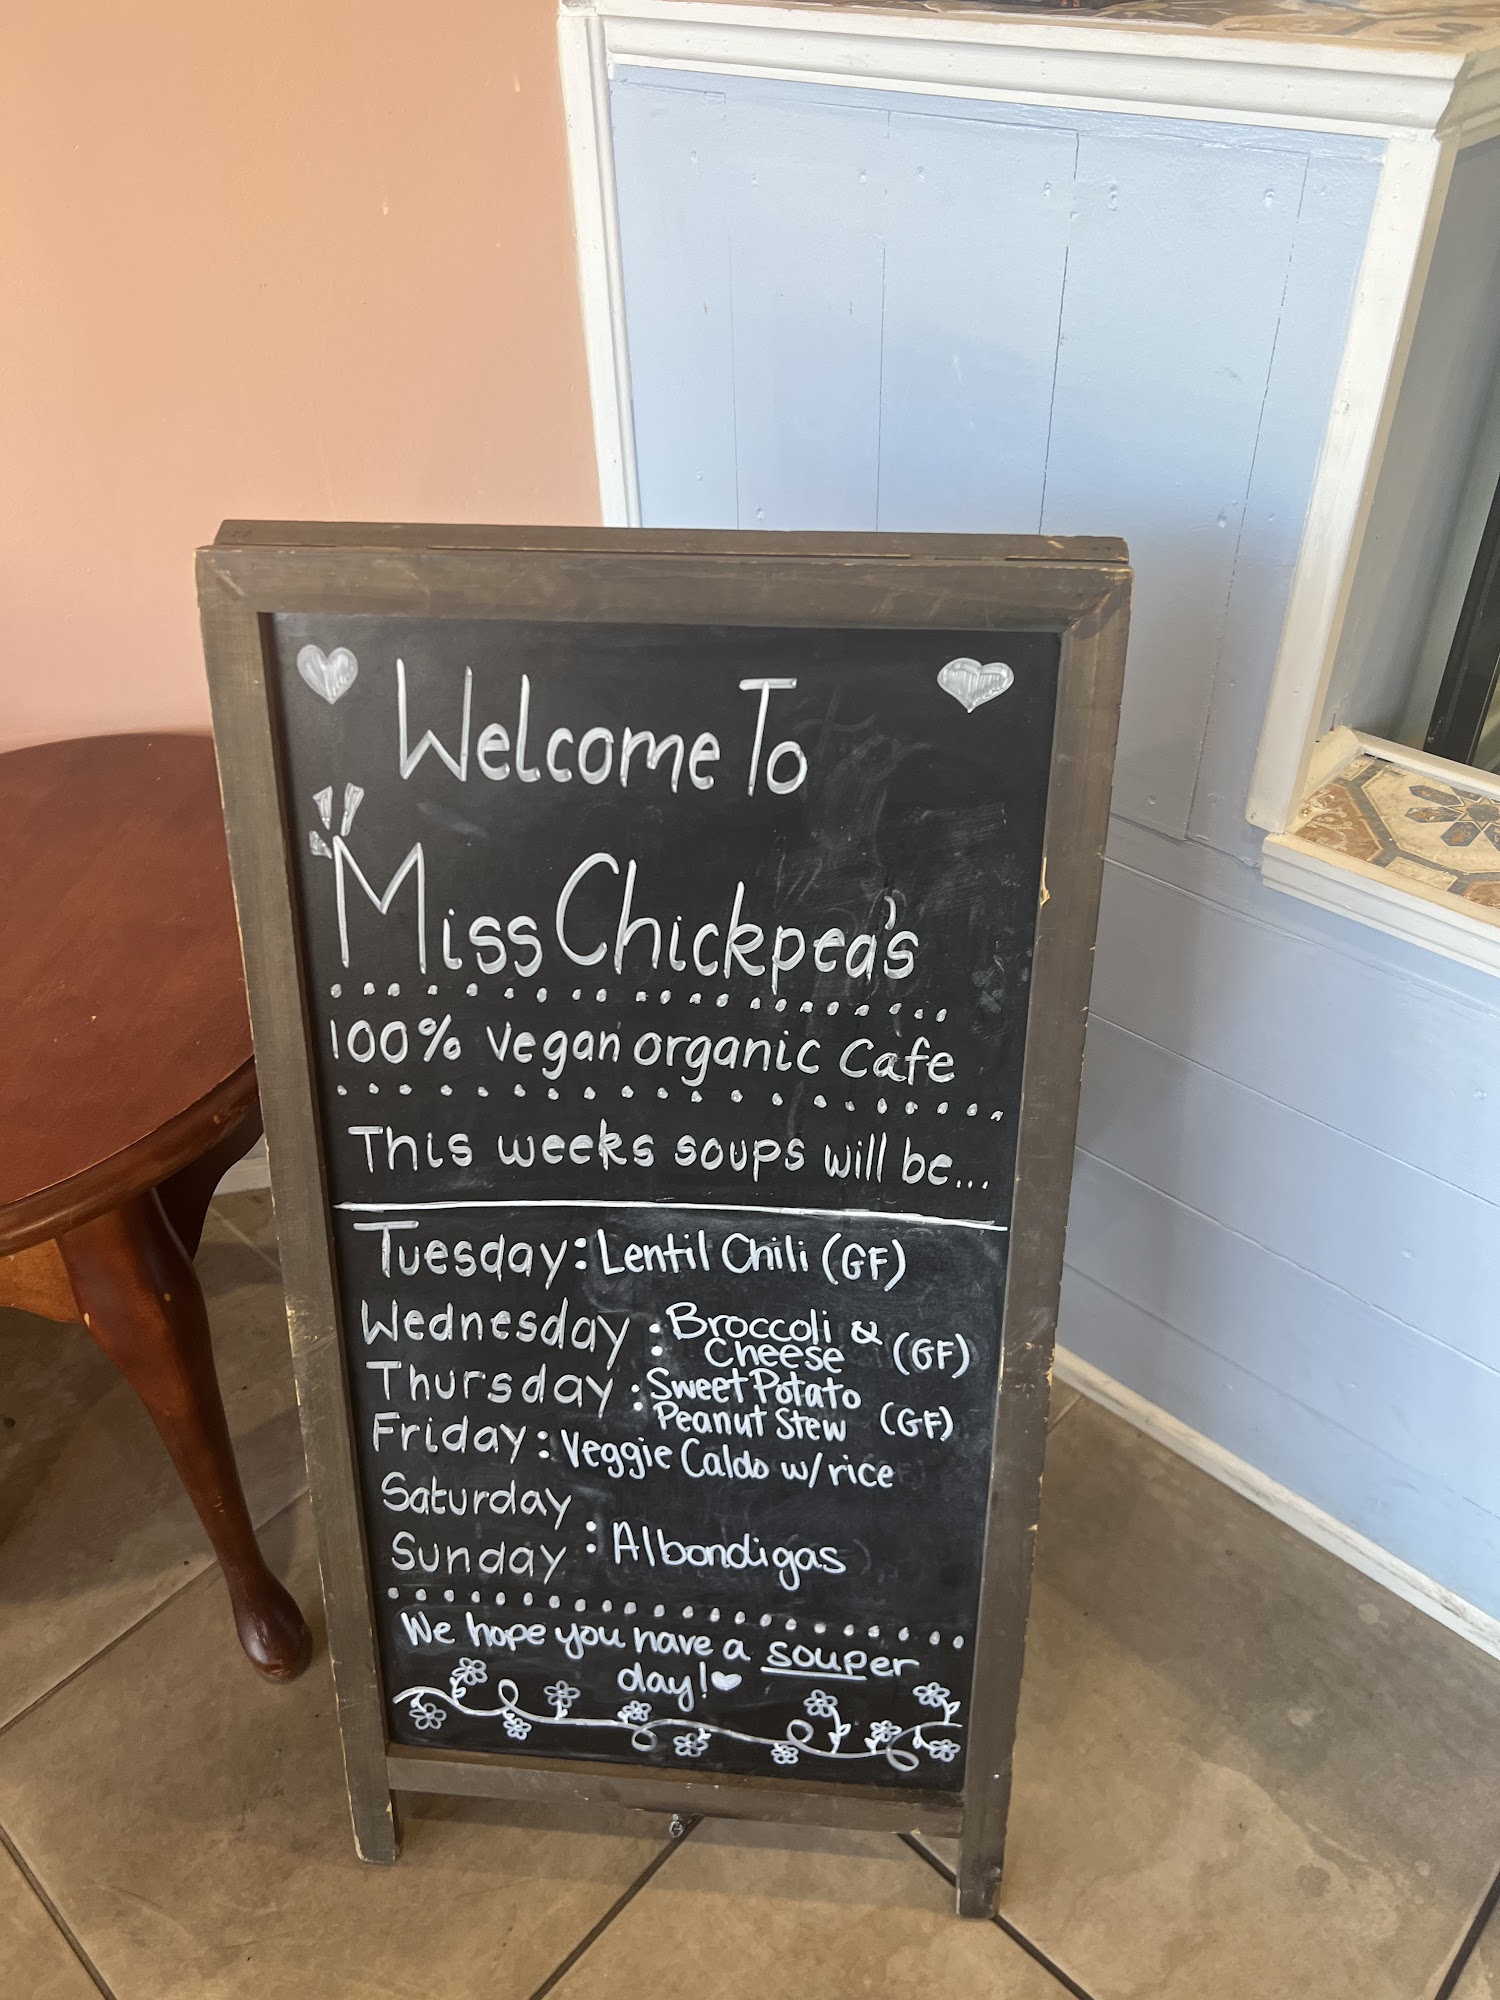 Welcome To
Miss Chickpea's
100% vegan organic Cafe
This weeks soups will be...
Tuesday: Lentil Chili (GF)
Wednesday: Broccoli &
Cheese (GF)
Thursday: Sweet Potato
Peanut Stew (GF)
Friday: Veggie Caldo w/rice
Saturday
Sunday : Albondigas
We hope you have a souper
day!